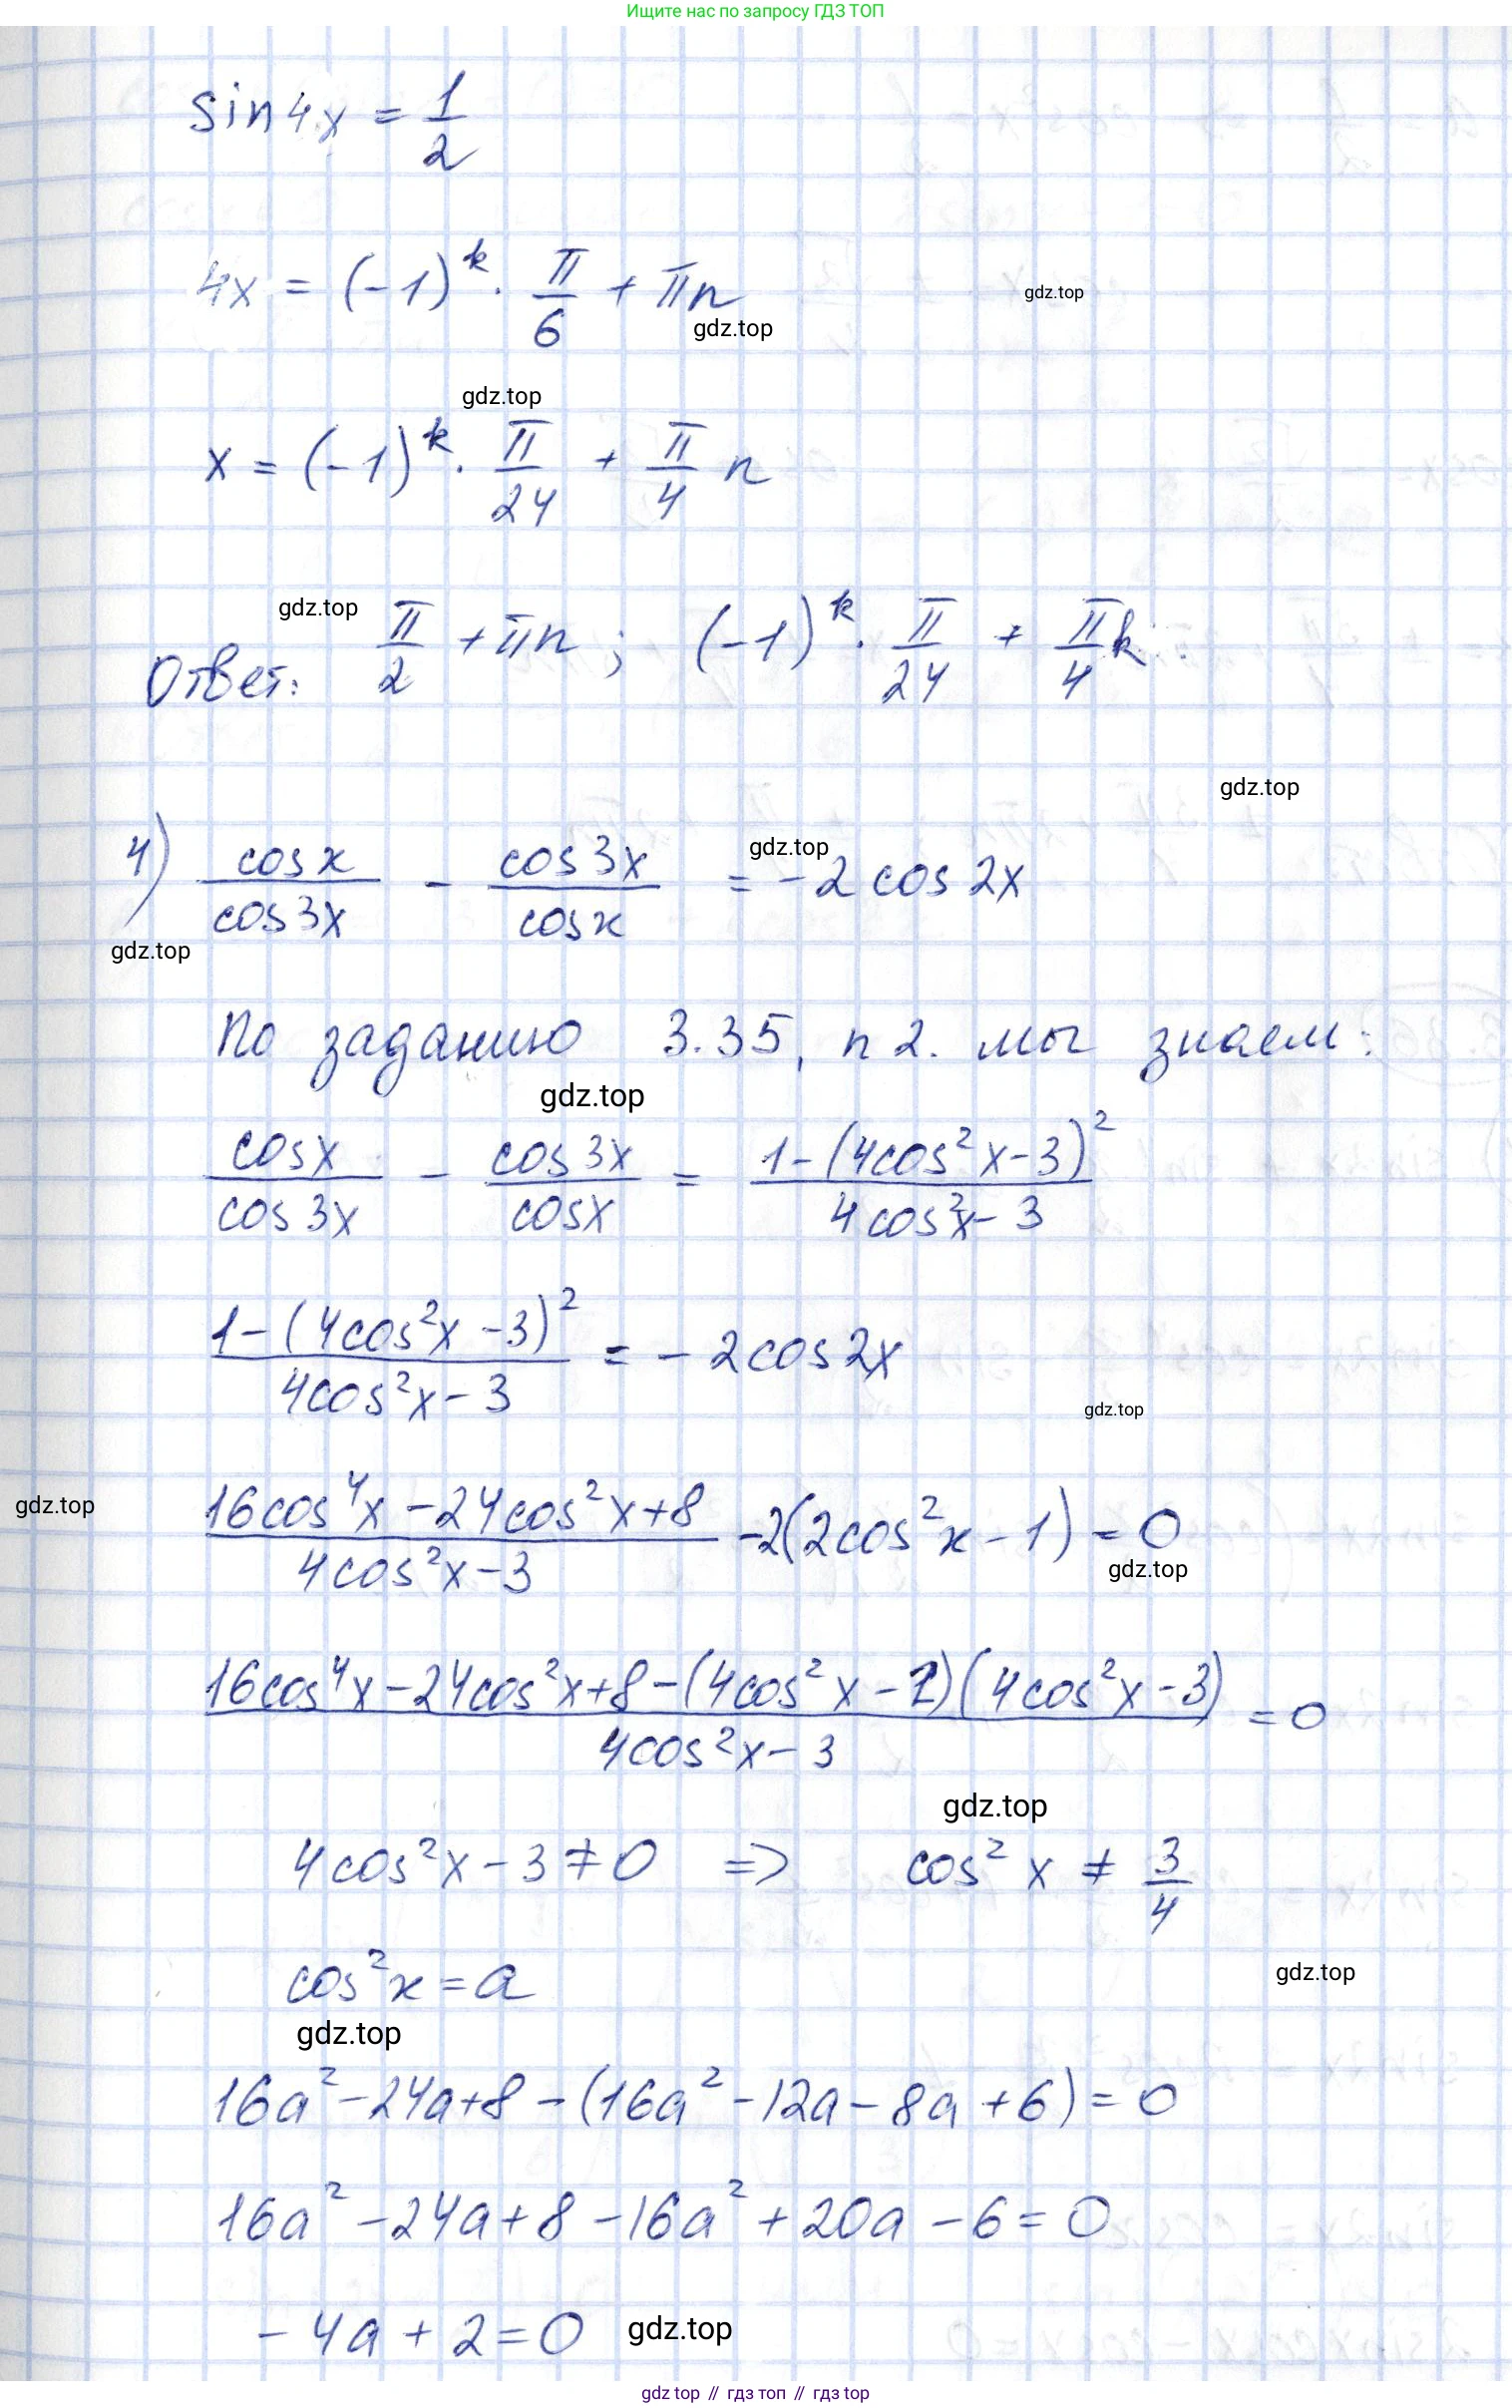 Ищите нас по запросу ГДЗ ТОП
sin4x = 1/2
4x = (-1)^k · π/6 + πn
gdz.top
gdz.top
gdz.top
x = (-1)^k · π/24 + π/4 n
gdz.top
Ответ: π/2 + πn; (-1)^k · π/24 + π/4 k
gdz.top
gdz.top
4) cosx/cos3x - cos3x/cosx = -2cos2x
gdz.top
По заданию 3.35, п 2. мы знаем:
gdz.top
cosx/cos3x - cos3x/cosx = (1-(4cos²x-3)²)/(4cos²x-3)
(1-(4cos²x-3)²)/(4cos²x-3) = -2cos2x
gdz.top
gdz.top
(16cos⁴x-24cos²x+8)/(4cos²x-3) -2(2cos²x-1) = 0
gdz.top
(16cos⁴x-24cos²x+8-(4cos²x-2)(4cos²x-3))/(4cos²x-3) = 0
gdz.top
4cos²x-3≠0 => cos²x ≠ 3/4
cos²x = a
gdz.top
gdz.top
16a²-24a+8-(16a²-12a-8a+6)=0
16a²-24a+8-16a²+20a-6=0
-4a+2=0
gdz.top
gdz top // гдз топ // гдз top